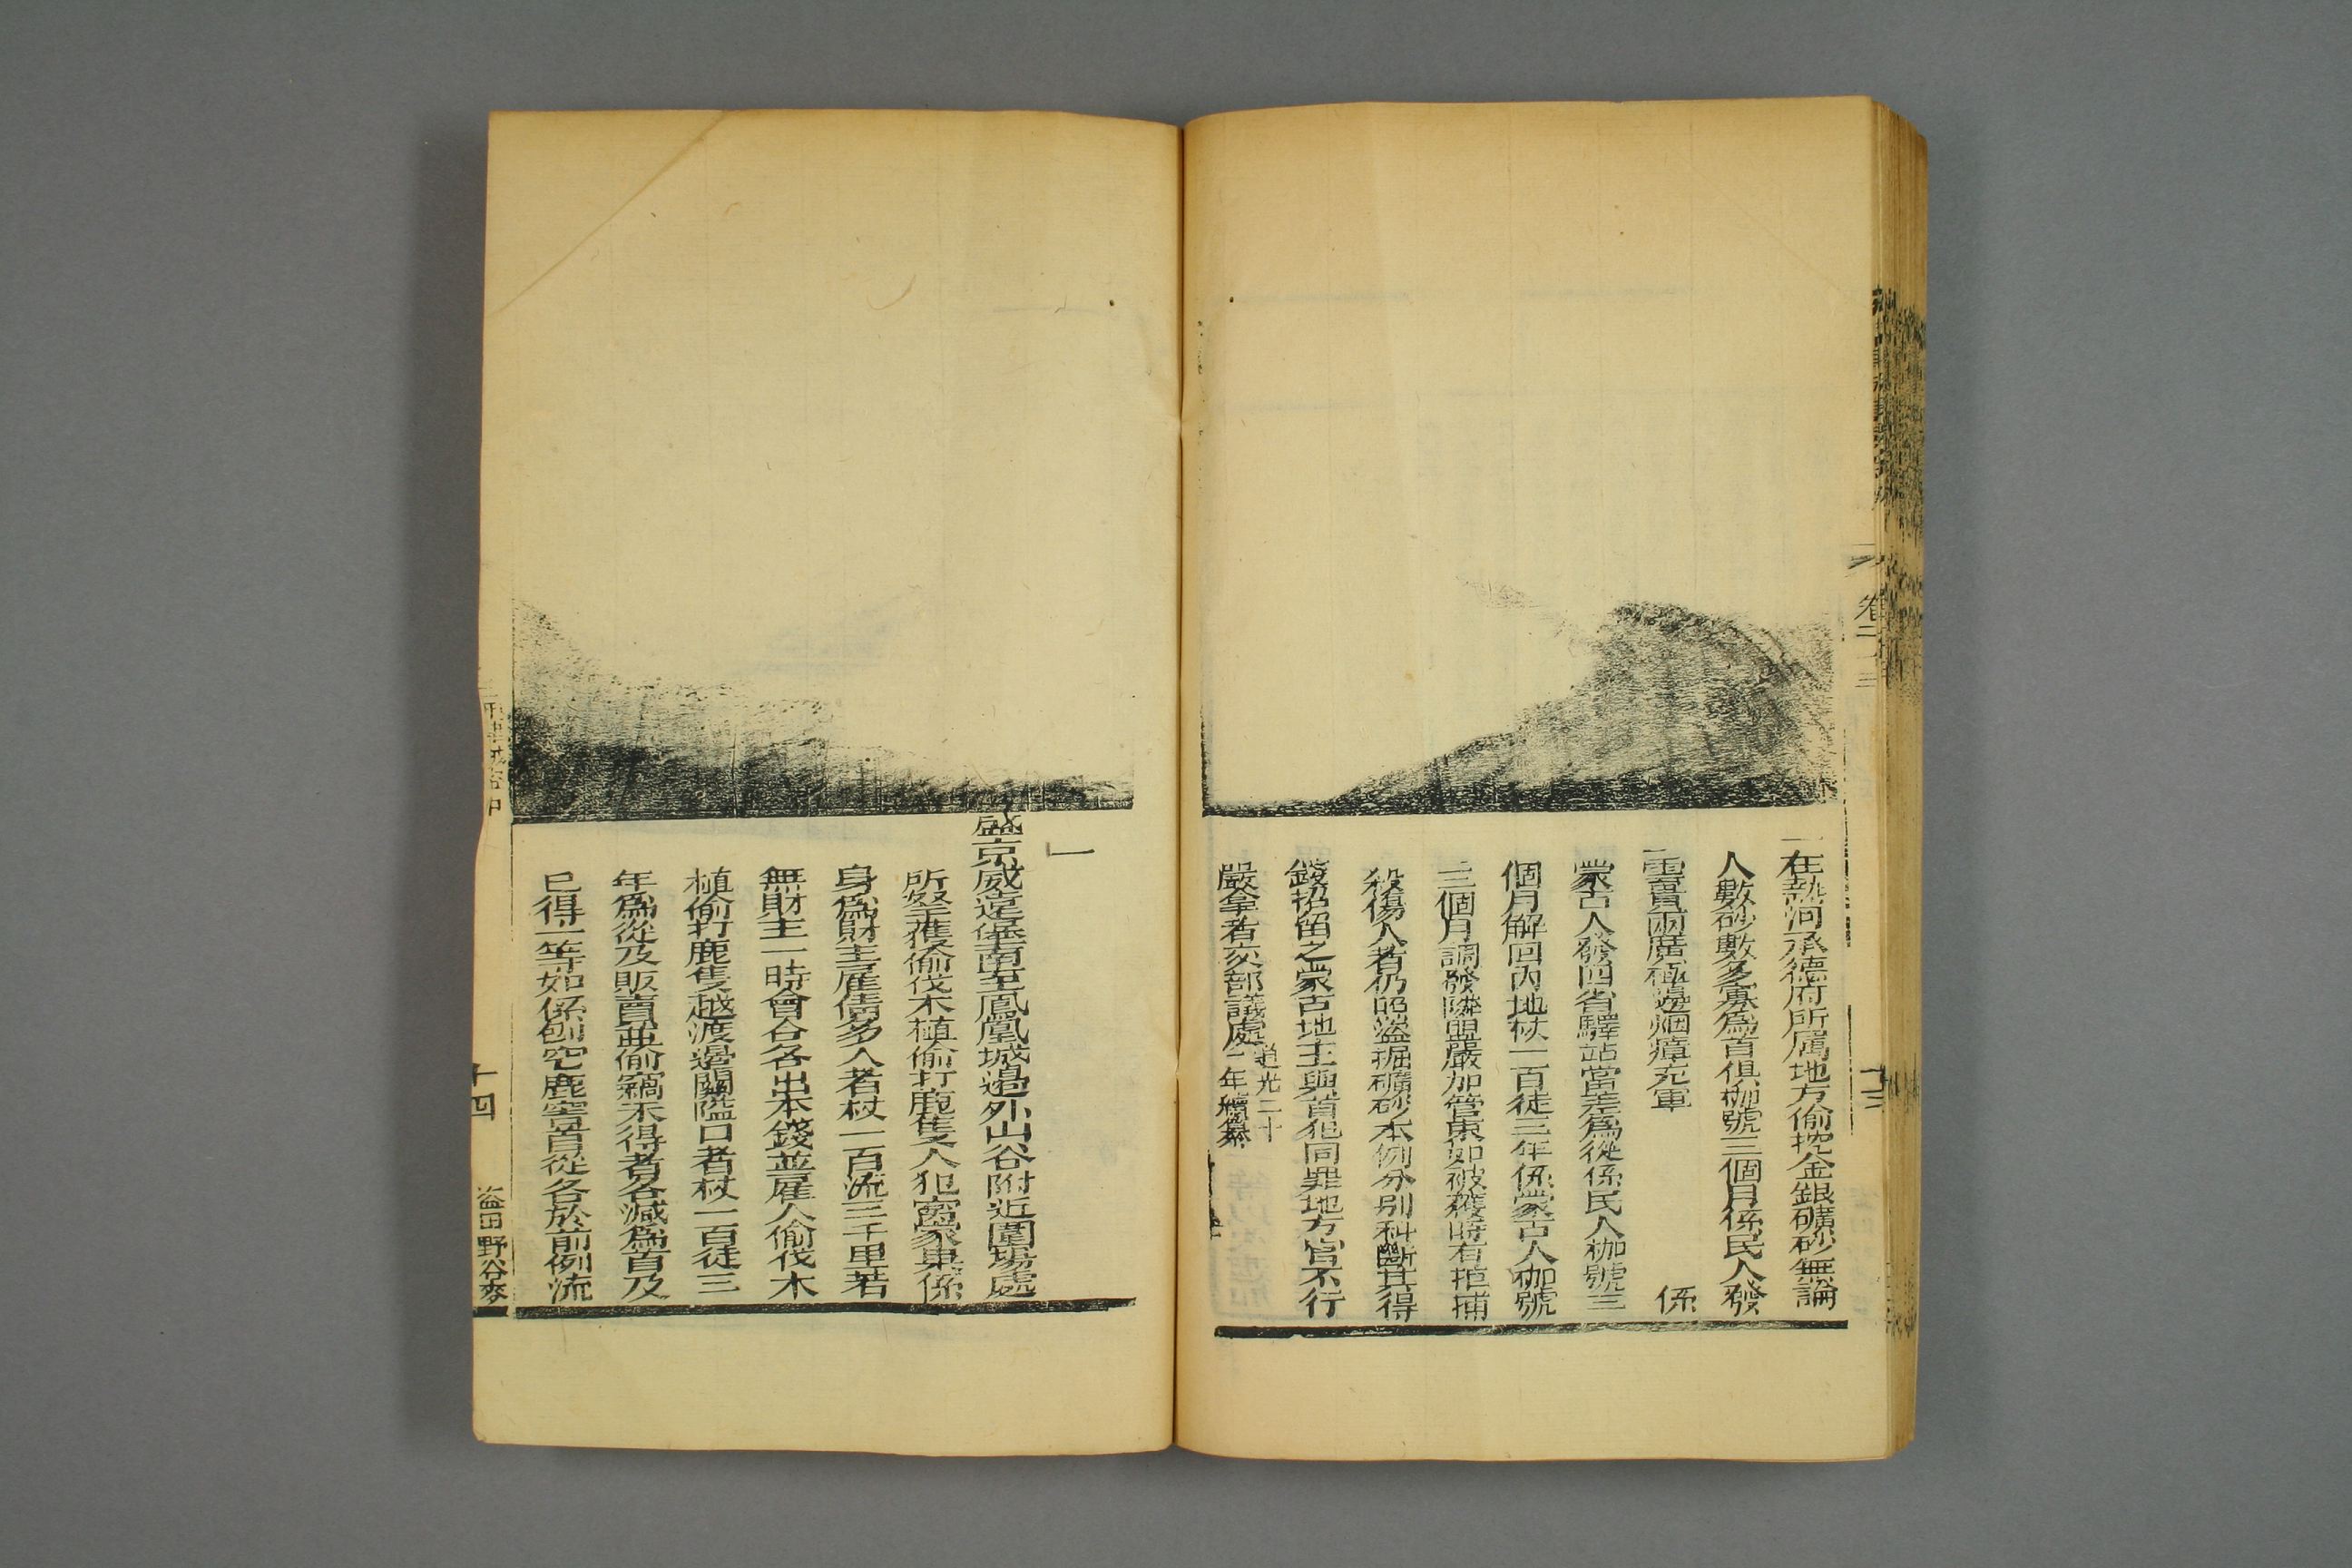 一在熱河承德府所屬地方偷挖金銀礦砂無論
人數砂數多寡爲首俱枷號三個月係民人發
雲貴兩廣極邊烟瘴充軍 係
蒙古人發四省驛站當差爲從係民人枷號三
個月解回內地杖一百徒三年係蒙古人枷號
三個月調發隣盟嚴加管束如被獲時有拒捕
殺傷人者仍照盜掘礦砂本例分別科斷其得
錢招留之蒙古地主與首犯同罪地方官不行
嚴拿者交部議處 道光二十
一年續纂
卷二十三
十三
一
盛京威遠堡南至鳳凰城邊外山谷附近圍場處
所拏獲偷伐木植偷打鹿隻人犯審實果係
身爲財主雇倩多人者杖一百流三千里若
無財主一時會合各出本錢並雇人偷伐木
植偷打鹿隻越渡邊關隘口者杖一百徒三
年爲從及販賣並偷竊未得者各減爲首及
已得一等如係刨穵鹿窖首從各於前例流
十四
盜田野谷麥